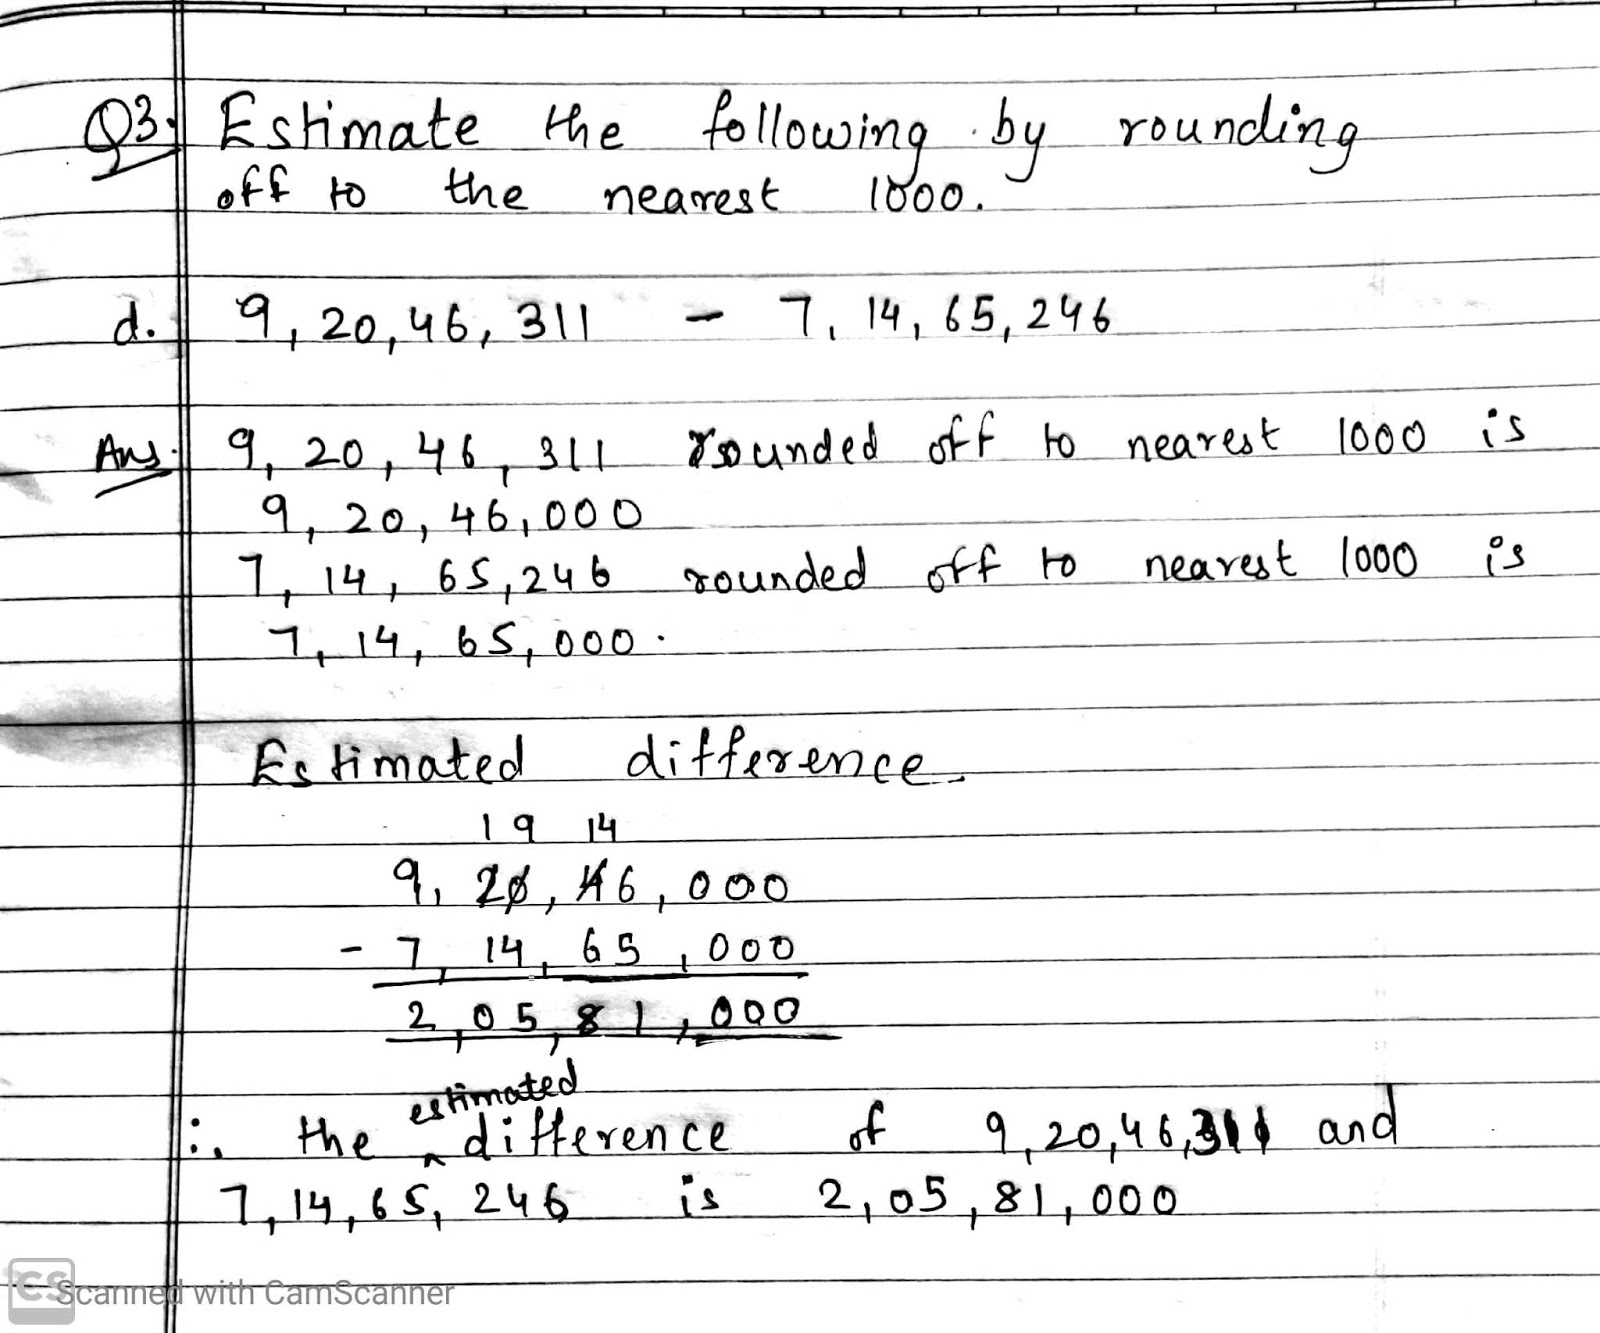 Q3. Estimate the following by rounding
off to the nearest 1000.
d. 9,20,46,311 - 7,14,65,246
Ans. 9,20,46,311 rounded off to nearest 1000 is
9,20,46,000
7,14,65,246 rounded off to nearest 1000 is
7,14,65,000.
Estimated difference
19 14
9,20,46,000
- 7,14,65,000
2,05,81,000
estimated
∴ the ^ difference of 9,20,46,311 and
7,14,65,246 is 2,05,81,000
CS Scanned with CamScanner